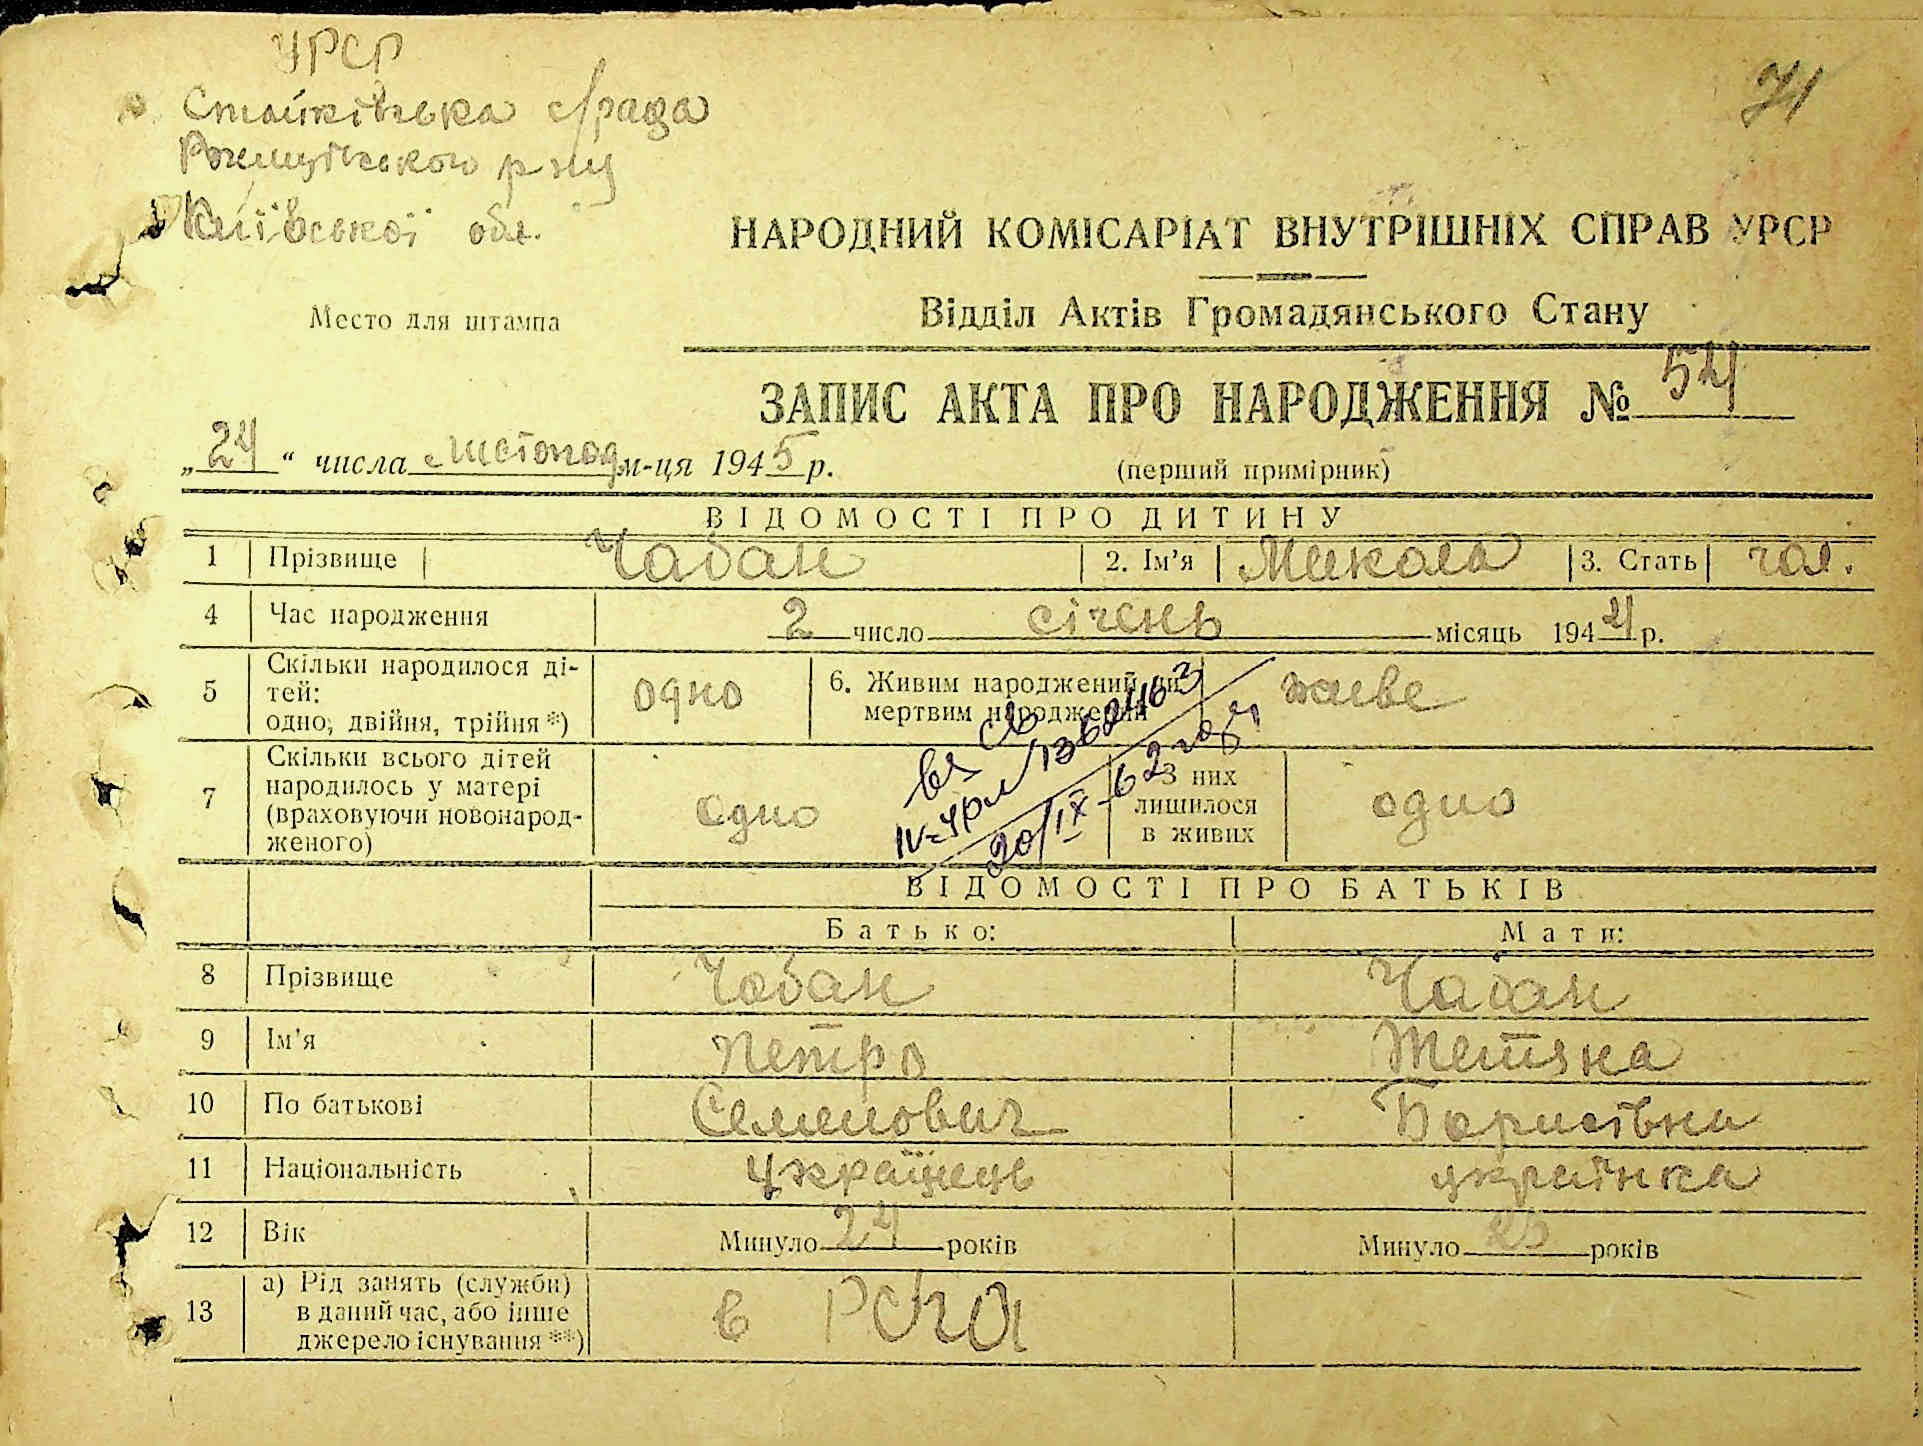 УРСР
71
Стайківська с/рада
Ржищівського р-ну
Київської обл.
НАРОДНИЙ КОМІСАРІАТ ВНУТРІШНІХ СПРАВ УРСР
Место для штампа
Відділ Актів Громадянського Стану
ЗАПИС АКТА ПРО НАРОДЖЕННЯ № 54
„24“ числа листопад м-ця 1945 р.
(перший примірник)
ВІДОМОСТІ ПРО ДИТИНУ
1 Прізвище Чабан 2. Ім'я Микола 3. Стать чол.
4 Час народження 2 число січень місяць 1944 р.
5 Скільки народилося ді-
тей:
одно, двійня, трійня *) одно
6. Живим народжений чи
мертвим народжений живе
7 Скільки всього дітей
народилось у матері
(враховуючи новонарод-
женого) одно
З них
лишилося
в живих одно
20/IX-62
ВІДОМОСТІ ПРО БАТЬКІВ
Батько: Мати:
8 Прізвище Чабан Чабан
9 Ім'я Петро Тетяна
10 По батькові Семенович Борисівна
11 Національність українець українка
12 Вік Минуло 24 років Минуло років
13 а) Рід занять (служби)
в даний час, або інше
джерело існування **) в РСЧА